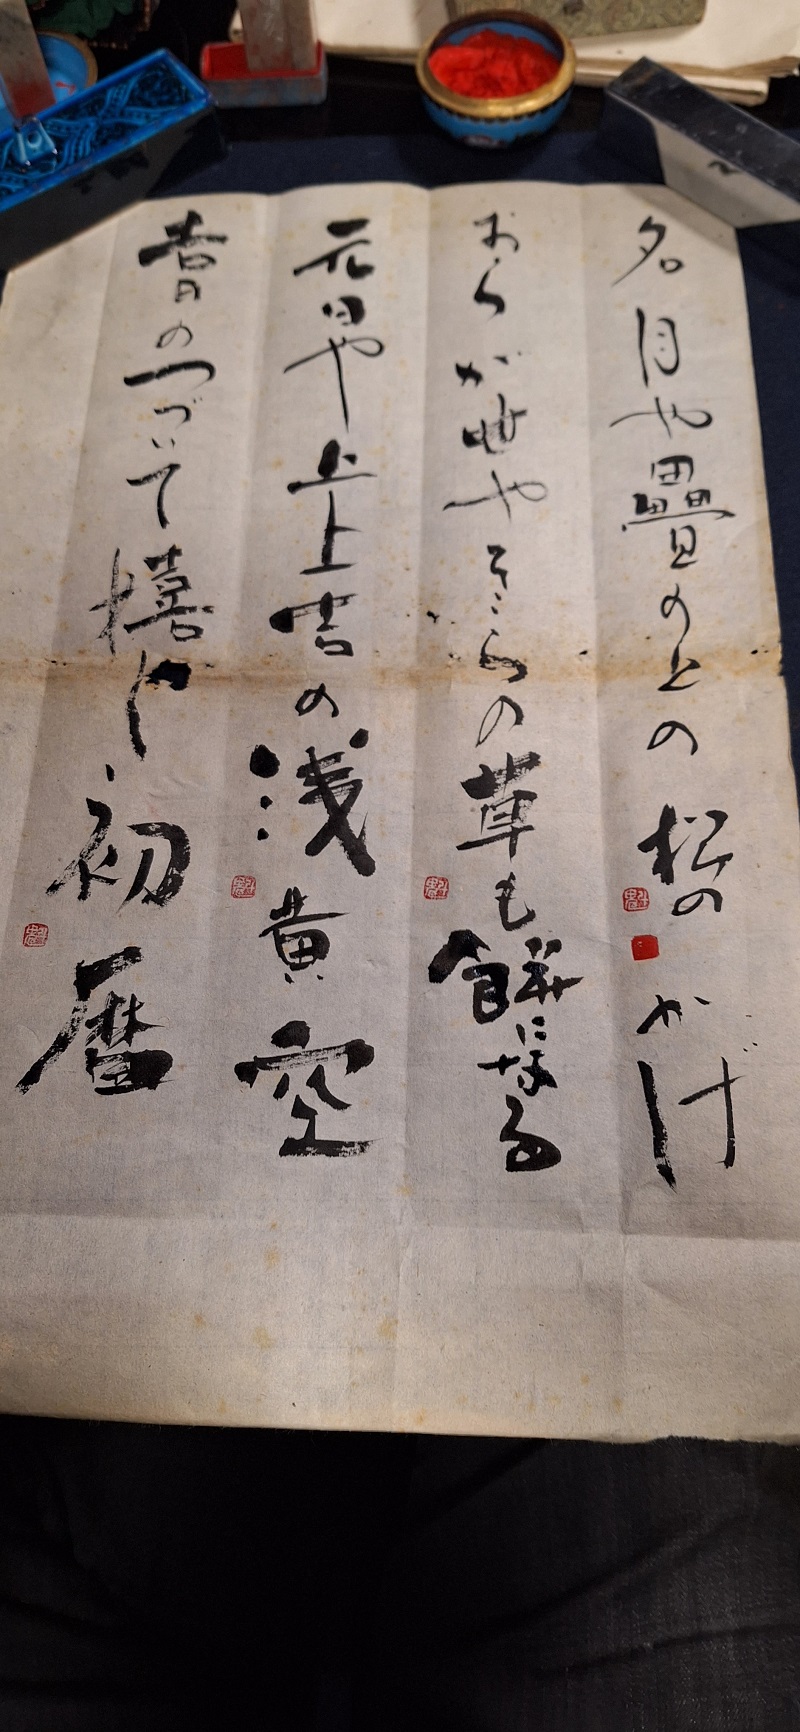 名月や疊の上の松のかげ
おらが世やそこらの草も餅になる
元日や上上吉の浅黄空
吉日のつづいて嬉し初暦